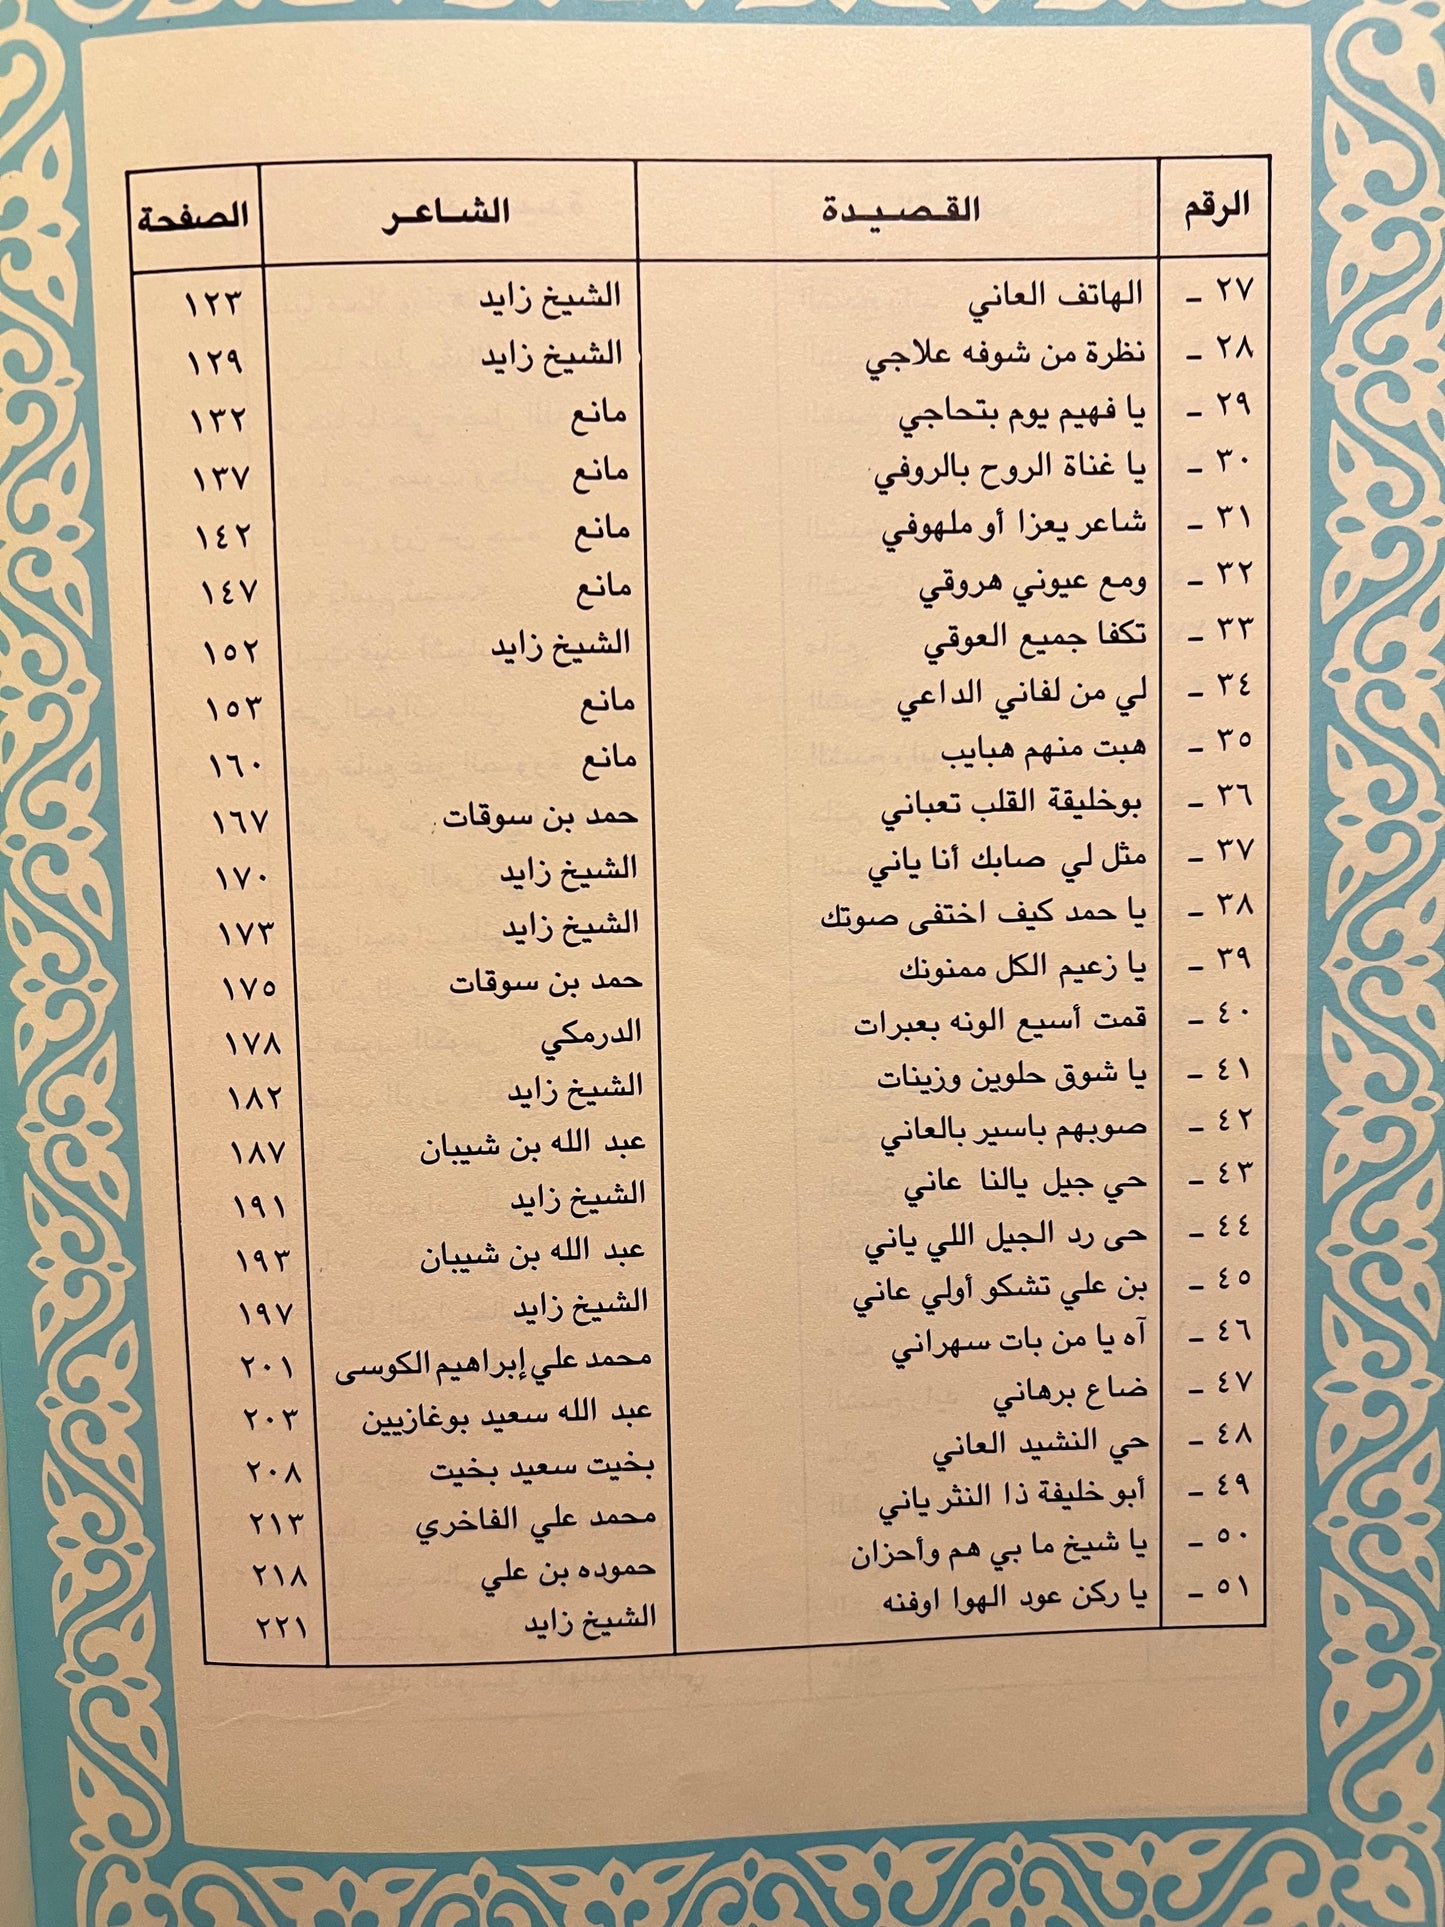 الرقم القصيدة الشاعر الصفحة
٢٧ ـ الهاتف العاني الشيخ زايد ١٢٣
٢٨ ـ نظرة من شوفه علاجي الشيخ زايد ١٢٩
٢٩ ـ يا فهيم يوم بتحاجي مانع ١٣٢
٣٠ ـ يا غناة الروح بالروفي مانع ١٣٧
٣١ ـ شاعر يعزا أو ملهوفي مانع ١٤٢
٣٢ ـ ومع عيوني هروقي مانع ١٤٧
٣٣ ـ تكفا جميع العوقي الشيخ زايد ١٥٢
٣٤ ـ لي من لفاني الداعي مانع ١٥٣
٣٥ ـ هبت منهم هبايب مانع ١٦٠
٣٦ ـ بوخليقة القلب تعباني حمد بن سوقات ١٦٧
٣٧ ـ مثل لي صابك أنا ياني الشيخ زايد ١٧٠
٣٨ ـ يا حمد كيف اختفى صوتك الشيخ زايد ١٧٣
٣٩ ـ يا زعيم الكل ممنونك حمد بن سوقات ١٧٥
٤٠ ـ قمت أسيع الونه بعبرات الدرمكي ١٧٨
٤١ ـ يا شوق حلوين وزينات الشيخ زايد ١٨٢
٤٢ ـ صوبهم باسير بالعاني عبد الله بن شيبان ١٨٧
٤٣ ـ حي جيل يالنا عاني الشيخ زايد ١٩١
٤٤ ـ حى رد الجيل اللي ياني عبد الله بن شيبان ١٩٣
٤٥ ـ بن علي تشكو أولي عاني الشيخ زايد ١٩٧
٤٦ ـ آه يا من بات سهراني محمد علي إبراهيم الكوسى ٢٠١
٤٧ ـ ضاع برهاني عبد الله سعيد بوغازيين ٢٠٣
٤٨ ـ حي النشيد العاني بخيت سعيد بخيت ٢٠٨
٤٩ ـ أبو خليفة ذا النثر ياني محمد علي الفاخري ٢١٣
٥٠ ـ يا شيخ ما بي هم وأحزان حموده بن علي ٢١٨
٥١ ـ يا ركن عود الهوا اوفنه الشيخ زايد ٢٢١